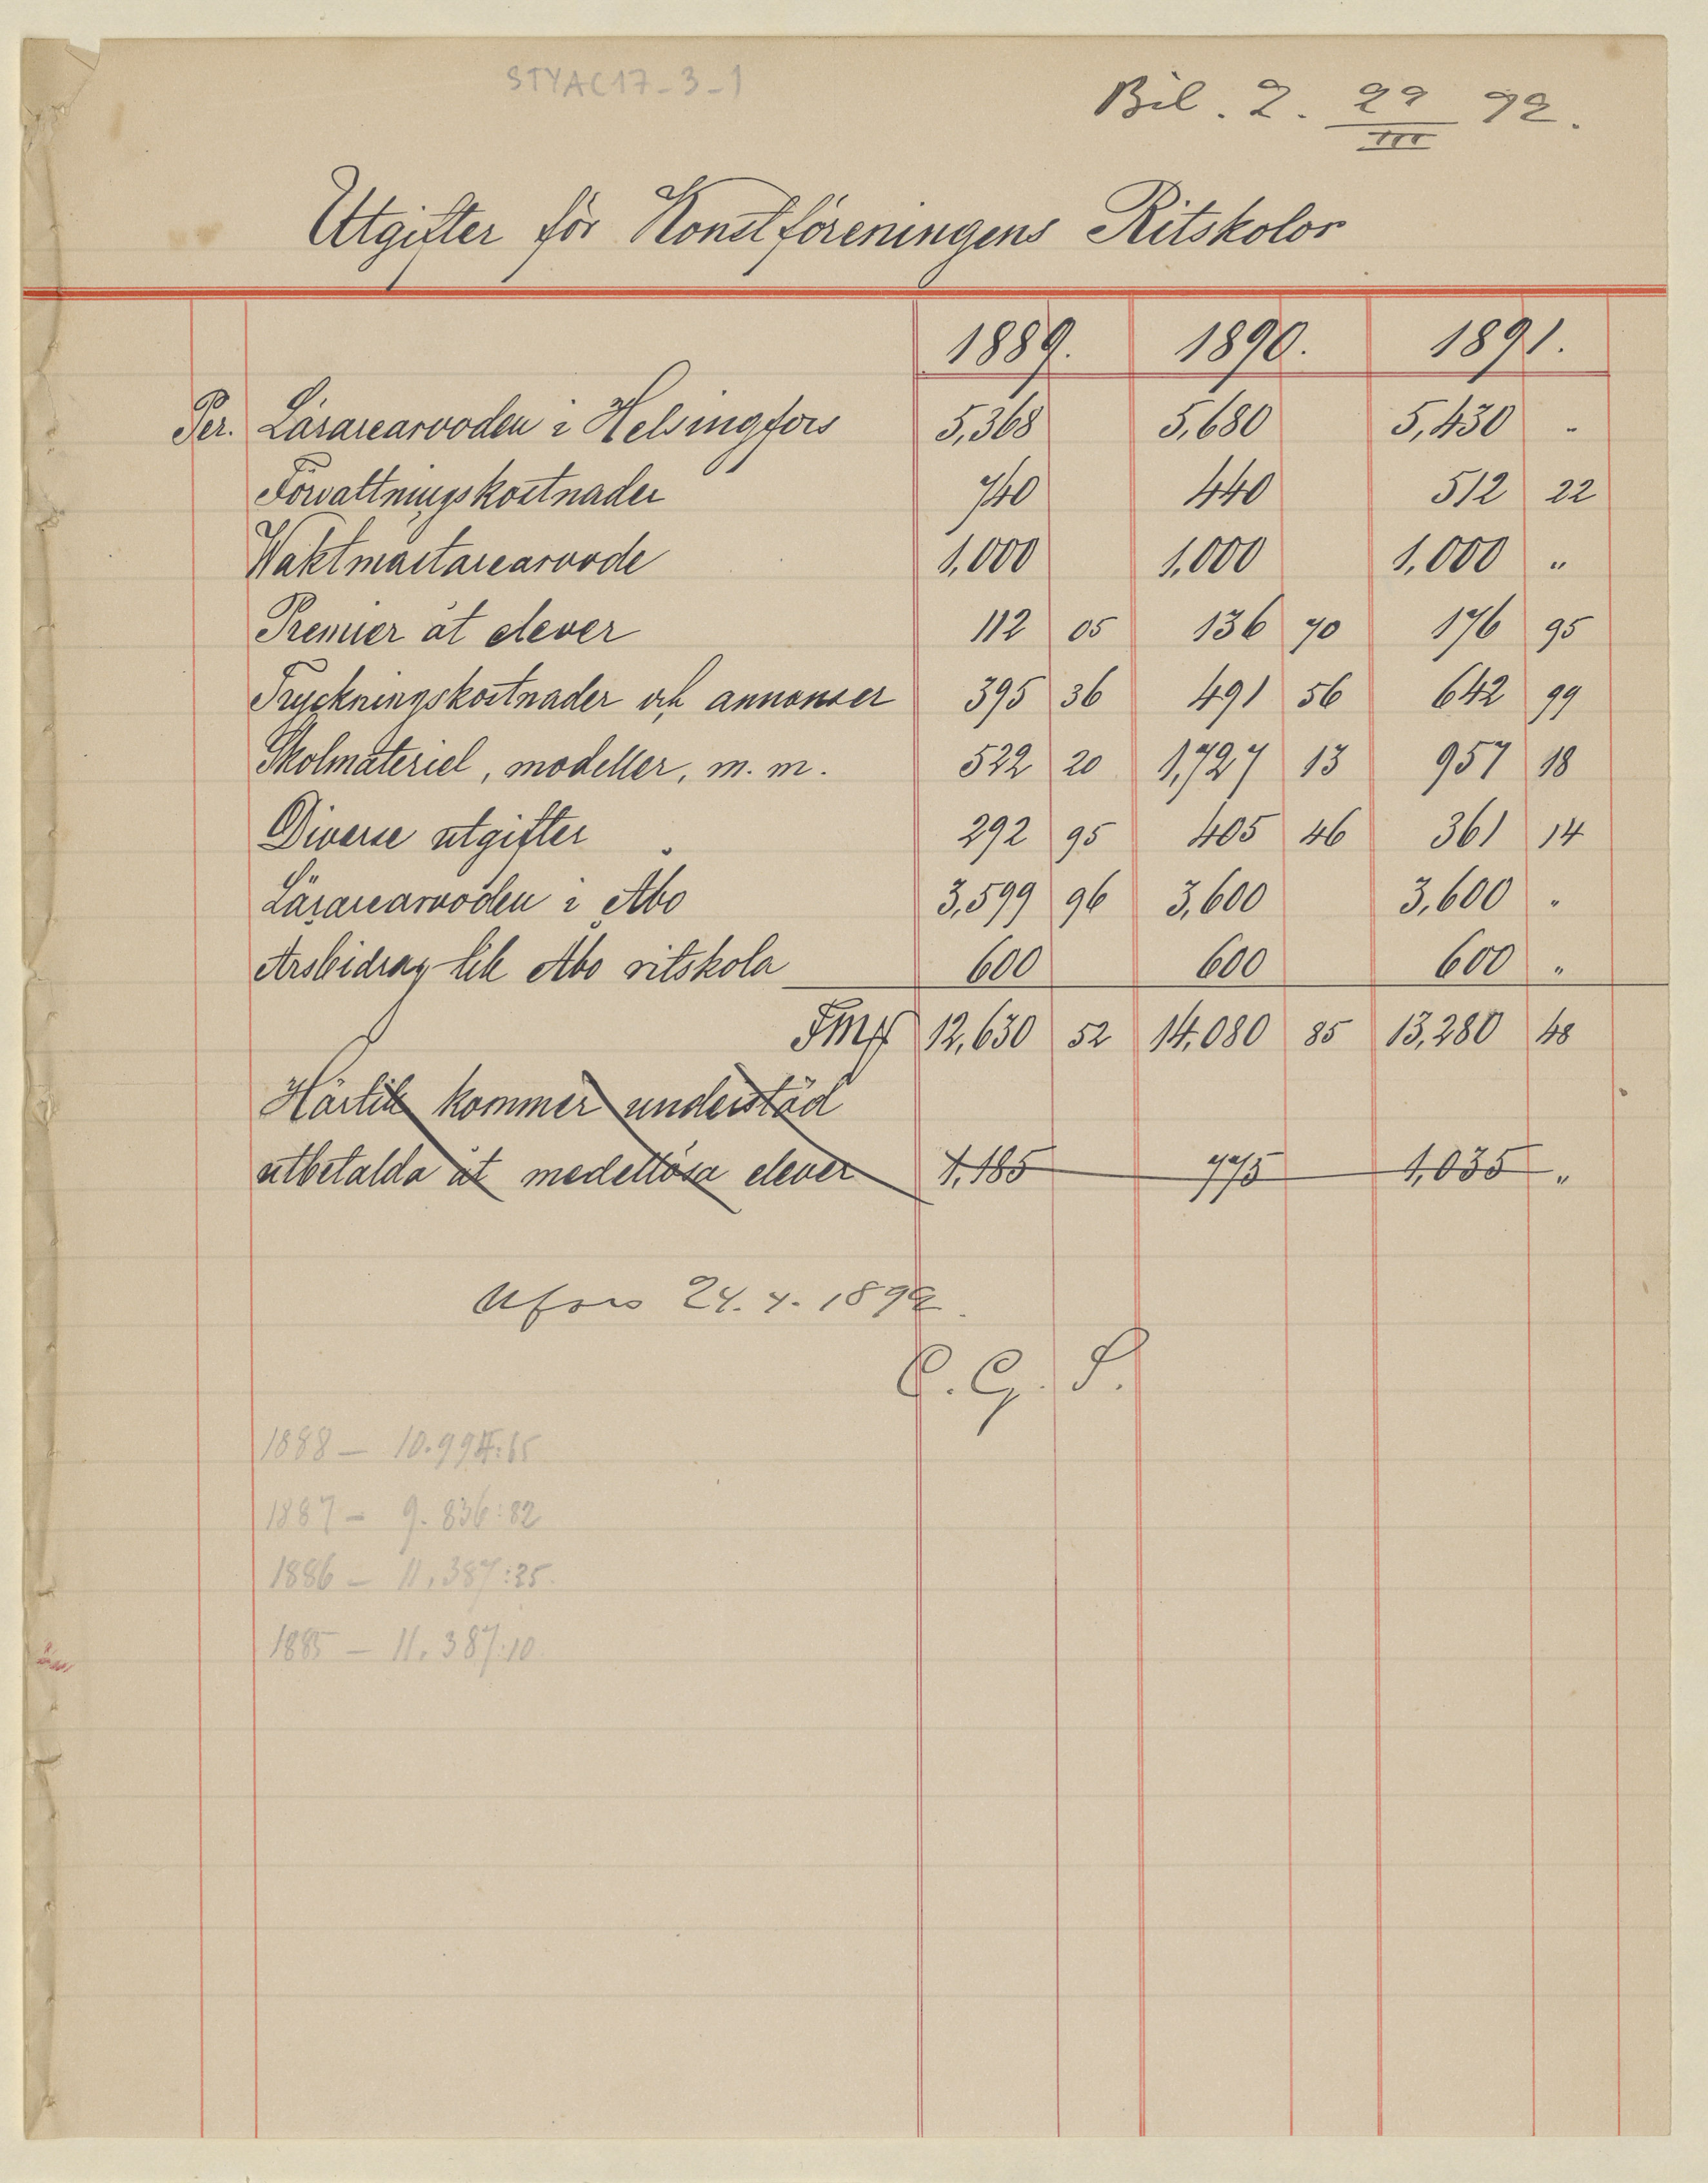 STYAC17-3-1
Bil. 2. 29/III 92.
Utgifter för Konstföreningens Ritskolor
1889. 1890. 1891.
Per. Lärarearvoden i Helsingfors 5,368 5,680 5,430 "
Förvaltningskostnader 740 440 512 22
Waktmästarearvode 1,000 1,000 1,000 "
Premier åt elever 112 05 136 70 176 95
Tryckningskostnader och annonser 395 36 491 56 642 99
Skolmateriel, modeller, m. m. 522 20 1,727 13 957 18
Diverse utgifter 292 95 405 46 361 14
Lärarearvoden i Åbo 3,599 96 3,600 3,600 "
Årsbidrag till Åbo ritskola 600 600 600 "
Fmk 12,630 52 14,080 85 13,280 48
Härtill kommer understöd
utbetalda åt medellösa elever 1,185 775 1,035 "
Hfors 24.4.1892.
C. G. S.
1888 — 10.994:65
1887 — 9.836:82
1886 — 11,387:25.
1885 — 11.387:10